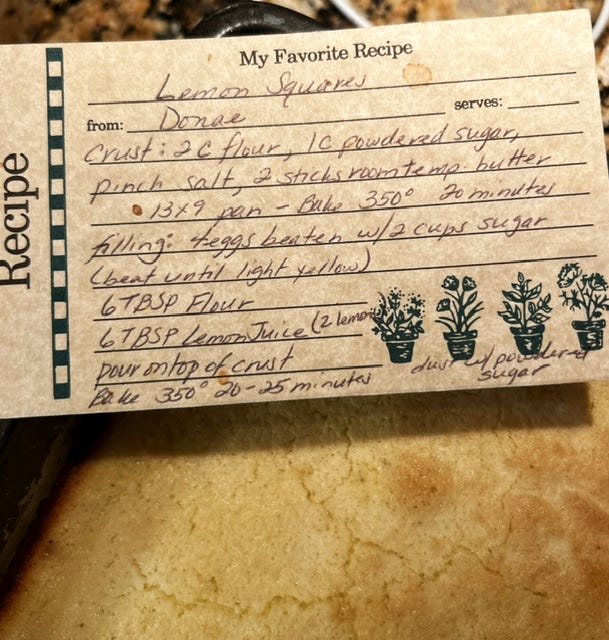 My Favorite Recipe
Lemon Squares
from: Donae serves:
Crust: 2 C flour, 1C powdered sugar,
pinch salt, 2 sticks room temp. butter
13x9 pan - Bake 350° 20 minutes
filling: 4 eggs beaten w/ 2 cups sugar
(beat until light yellow)
6 TBSP Flour
6 TBSP Lemon Juice (2 lemon
pour on top of crust
Bake 350° 20-25 minutes
dust w/ powdered
sugar
Recipe